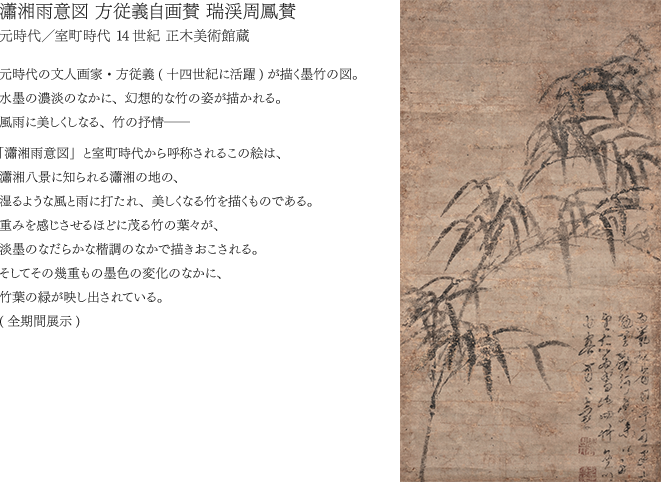 瀟湘雨意図 方従義自画賛 瑞渓周鳳賛
元時代／室町時代 14世紀 正木美術館蔵
元時代の文人画家・方従義(十四世紀に活躍)が描く墨竹の図。
水墨の濃淡のなかに、幻想的な竹の姿が描かれる。
風雨に美しくしなる、竹の抒情──
「瀟湘雨意図」と室町時代から呼称されるこの絵は、
瀟湘八景に知られる瀟湘の地の、
湿るような風と雨に打たれ、美しくなる竹を描くものである。
重みを感じさせるほどに茂る竹の葉々が、
淡墨のなだらかな楷調のなかで描きおこされる。
そしてその幾重もの墨色の変化のなかに、
竹葉の緑が映し出されている。
(全期間展示)